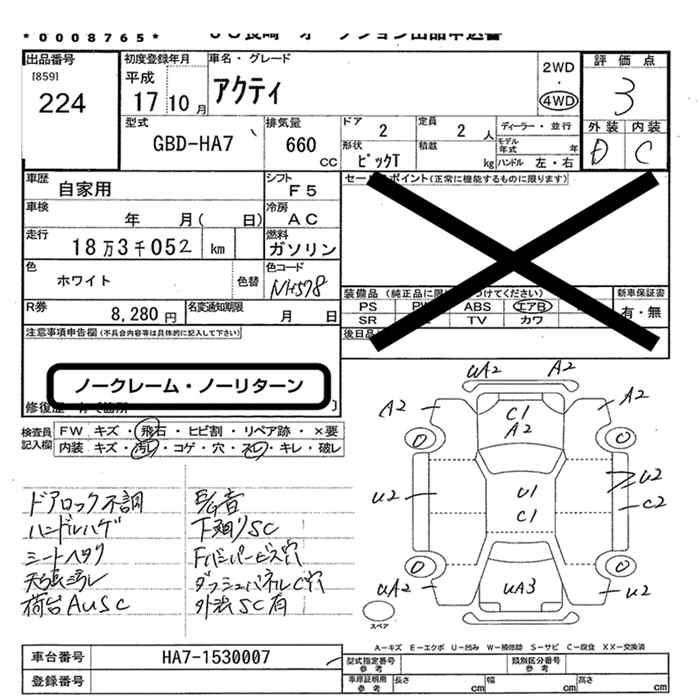 *0008765*
出品番号
[859]
224
初度登録年月
平成
17 10 月
車名・グレード
アクティ
2WD
・
4WD
評価点
3
外装 内装
D C
型式
GBD-HA7
排気量
660
cc
ドア
2
定員
2 人
ディーラー・並行
形状
ピックT
積載
kg
モデル年式 年
ハンドル 左・右
車歴
自家用
シフト
F5
車検
年 月( 日)
冷房
AC
走行
18万3千052 km
燃料
ガソリン
色
ホワイト
色替
色コード
NH578
R券
8,280 円
名変通知期限
月 日
ポイント(正常に機能するものに限ります)
装備品
PS ABS エアB
SR TV カワ
新車保証書
有・無
後日品
注意事項申告欄(不具合内容等は具体的に記入して下さい)
ノークレーム・ノーリターン
検査員記入欄
FW キズ・飛石・ヒビ割・リペア跡・×要
内装 キズ・汚レ・コゲ・穴・スレ・キレ・破レ
ドアロック不調
ハンドルハゲ
シートヘタリ
天張汚レ
荷台AUSC
E/G音
下廻りSC
Fバンパービス穴
ダッシュパネルC穴
外装SC有
UA2 A2
A2 A2
C1
A2
U2 U1 U2
C1 C2
UA2 UA3 U2
スペア
A-キズ E-エクボ U-凹み W-補修跡 S-サビ C-腐食 XX-交換済
車台番号
HA7-1530007
登録番号
型式指定番号
参考
類別区分番号
参考
車庫証明用
参考
長さ cm 幅 cm 高さ cm